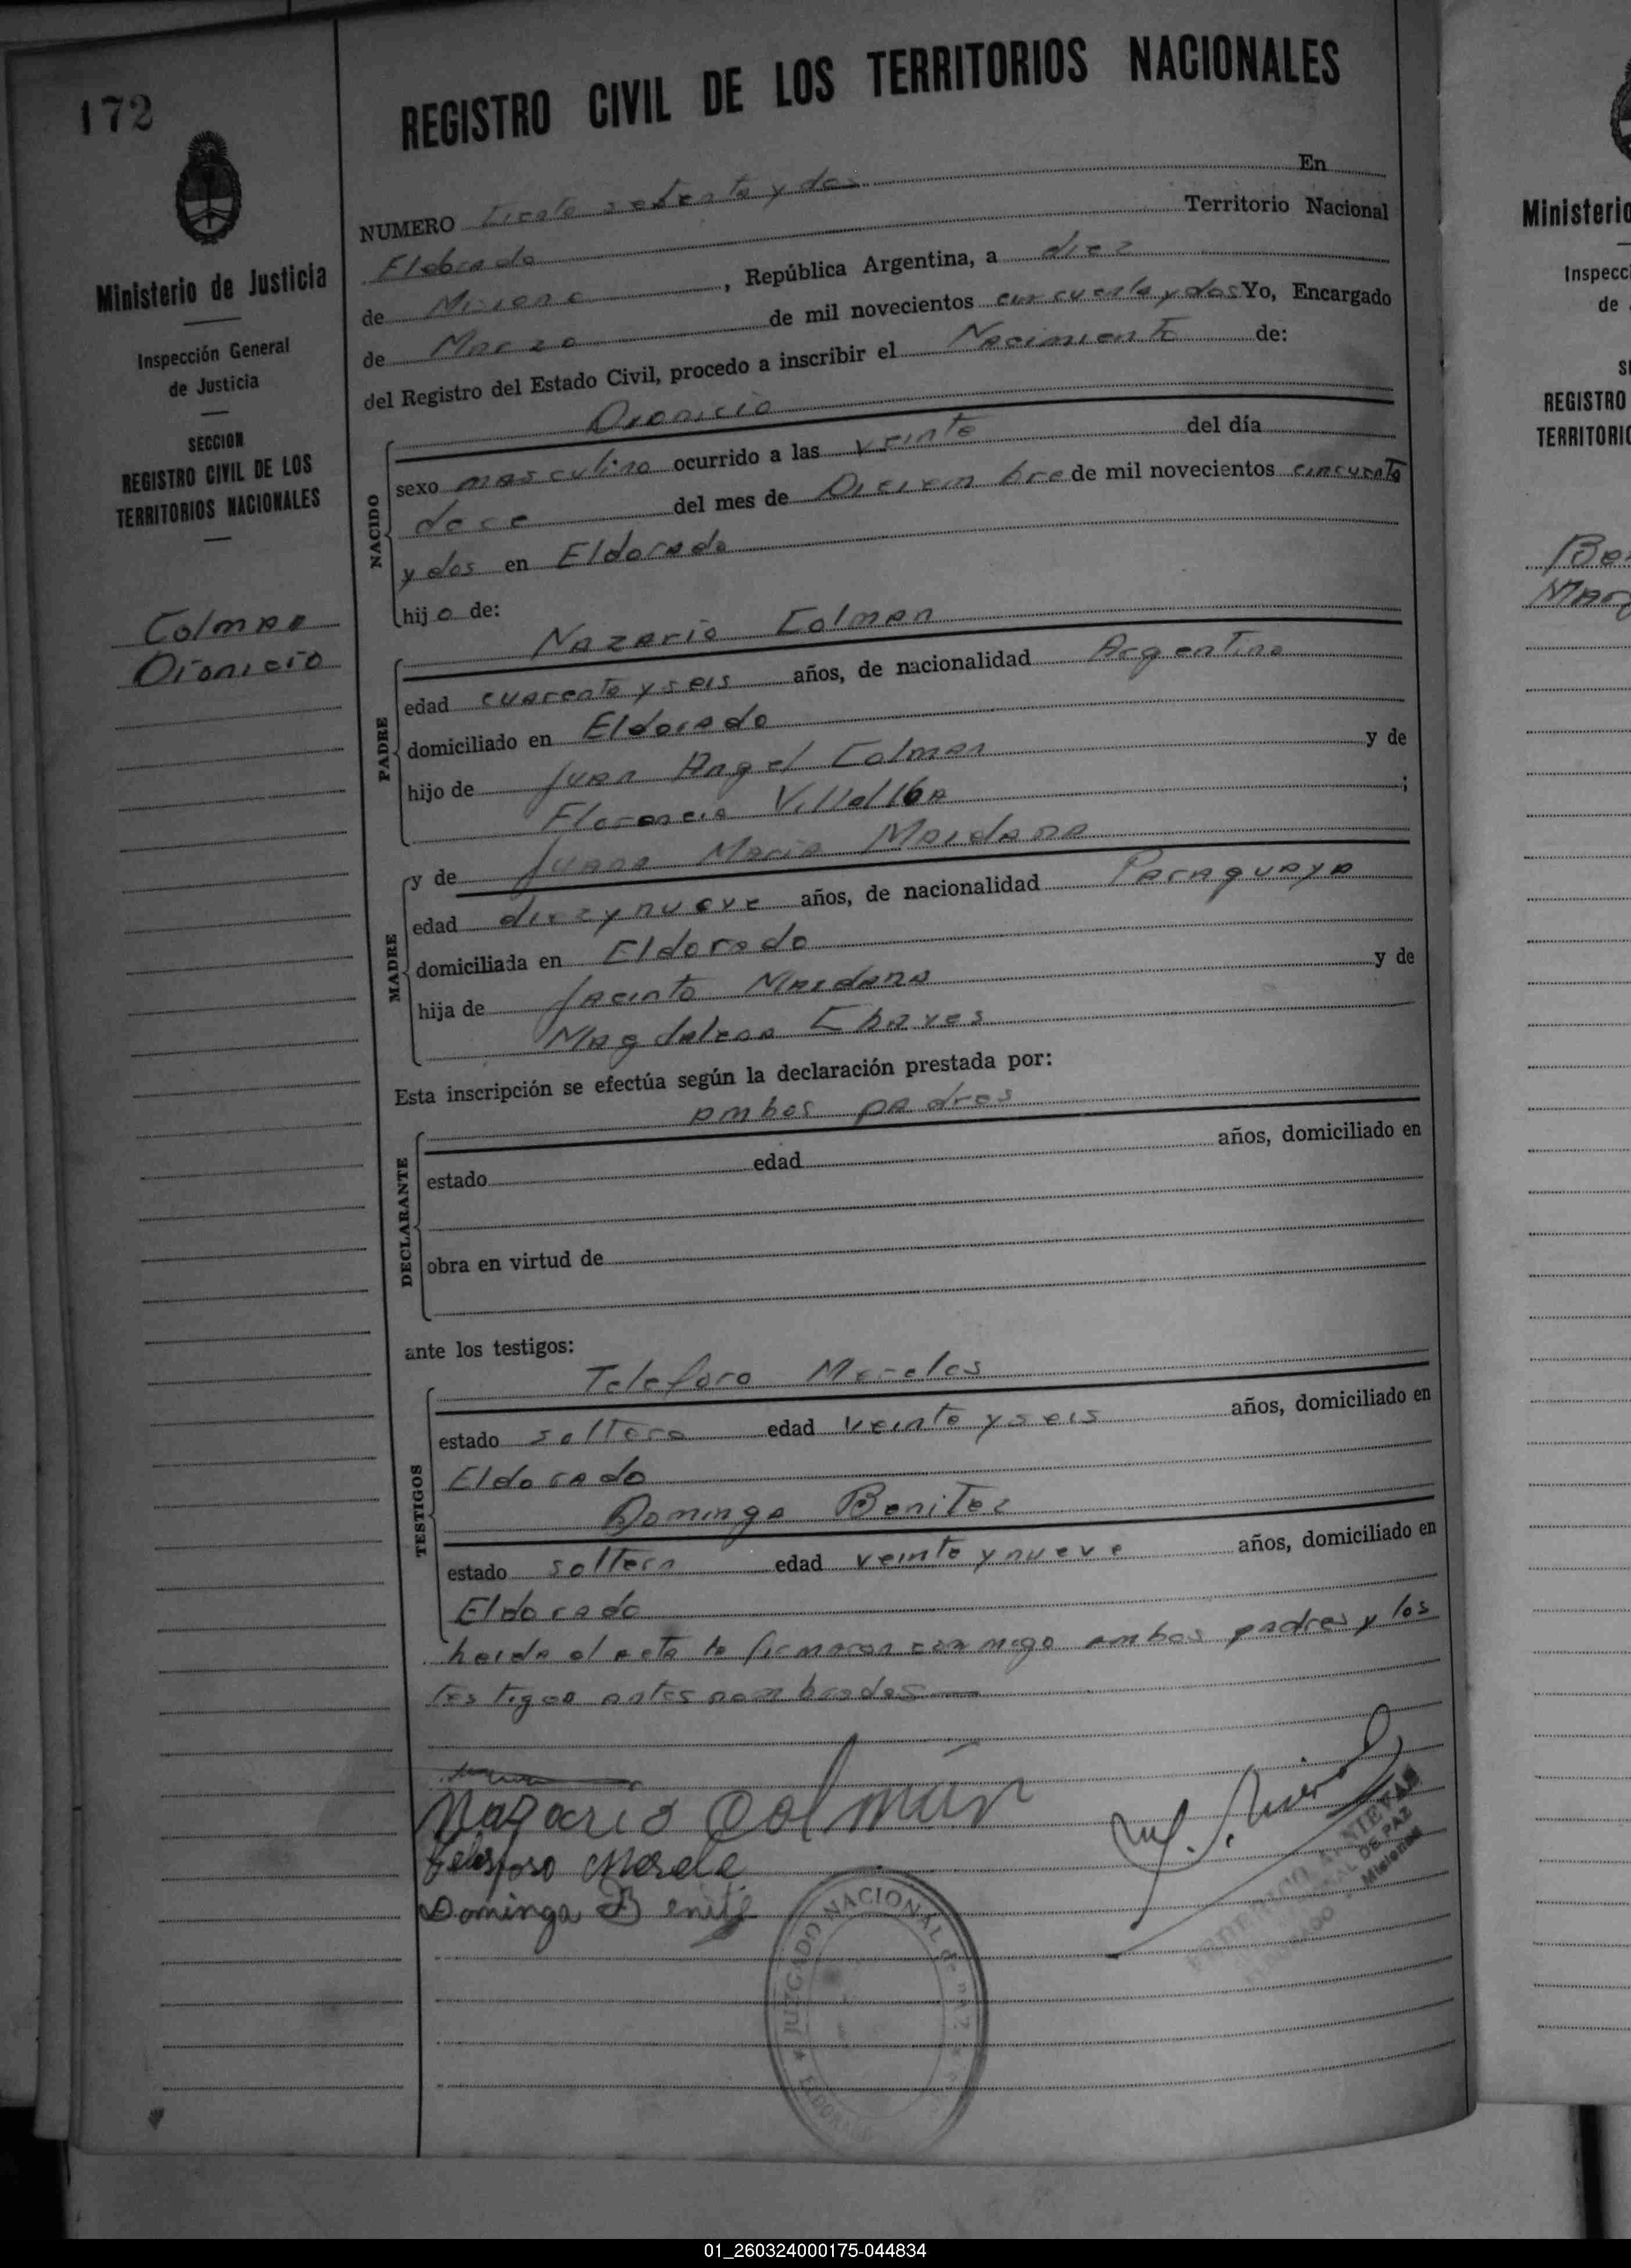 172
REGISTRO CIVIL DE LOS TERRITORIOS NACIONALES
NUMERO Ciento setenta y dos En
Eldorado Territorio Nacional
de Misiones, República Argentina, a diez
de Marzo de mil novecientos cincuenta y dos Yo, Encargado
del Registro del Estado Civil, procedo a inscribir el Nacimiento de:
Ministerio de Justicia
Inspección General
de Justicia
SECCION
REGISTRO CIVIL DE LOS
TERRITORIOS NACIONALES
Colman
Dionicio
NACIDO
Dionicio
sexo masculino ocurrido a las veinte del día
doce del mes de Diciembre de mil novecientos cincuenta
y dos en Eldorado
hijo de:
PADRE
Nazario Colman
edad cuarenta y seis años, de nacionalidad Argentina
domiciliado en Eldorado
hijo de Juan Angel Colman y de
Florencia Villalba;
MADRE
y de Juana Maria Maidana
edad diez y nueve años, de nacionalidad Paraguaya
domiciliada en Eldorado
hija de Jacinto Maidana y de
Magdalena Chaves
Esta inscripción se efectúa según la declaración prestada por:
ambos padres
DECLARANTE
estado edad años, domiciliado en
obra en virtud de
ante los testigos:
TESTIGOS
Telesforo Mereles
estado soltero edad veinte y seis años, domiciliado en
Eldorado
Dominga Benitez
estado soltera edad veinte y nueve años, domiciliado en
Eldorado
heida el acta la firmaron conmigo ambos padres y los
testigos antes nombrados
Nazario Colmán
Telesforo Merele
Dominga Benite
JUZGADO NACIONAL de PAZ
ELDORADO
DE PAZ
Misiones
Ministerio
Inspecc
de
REGISTRO
TERRITORIO
01_260324000175-044834